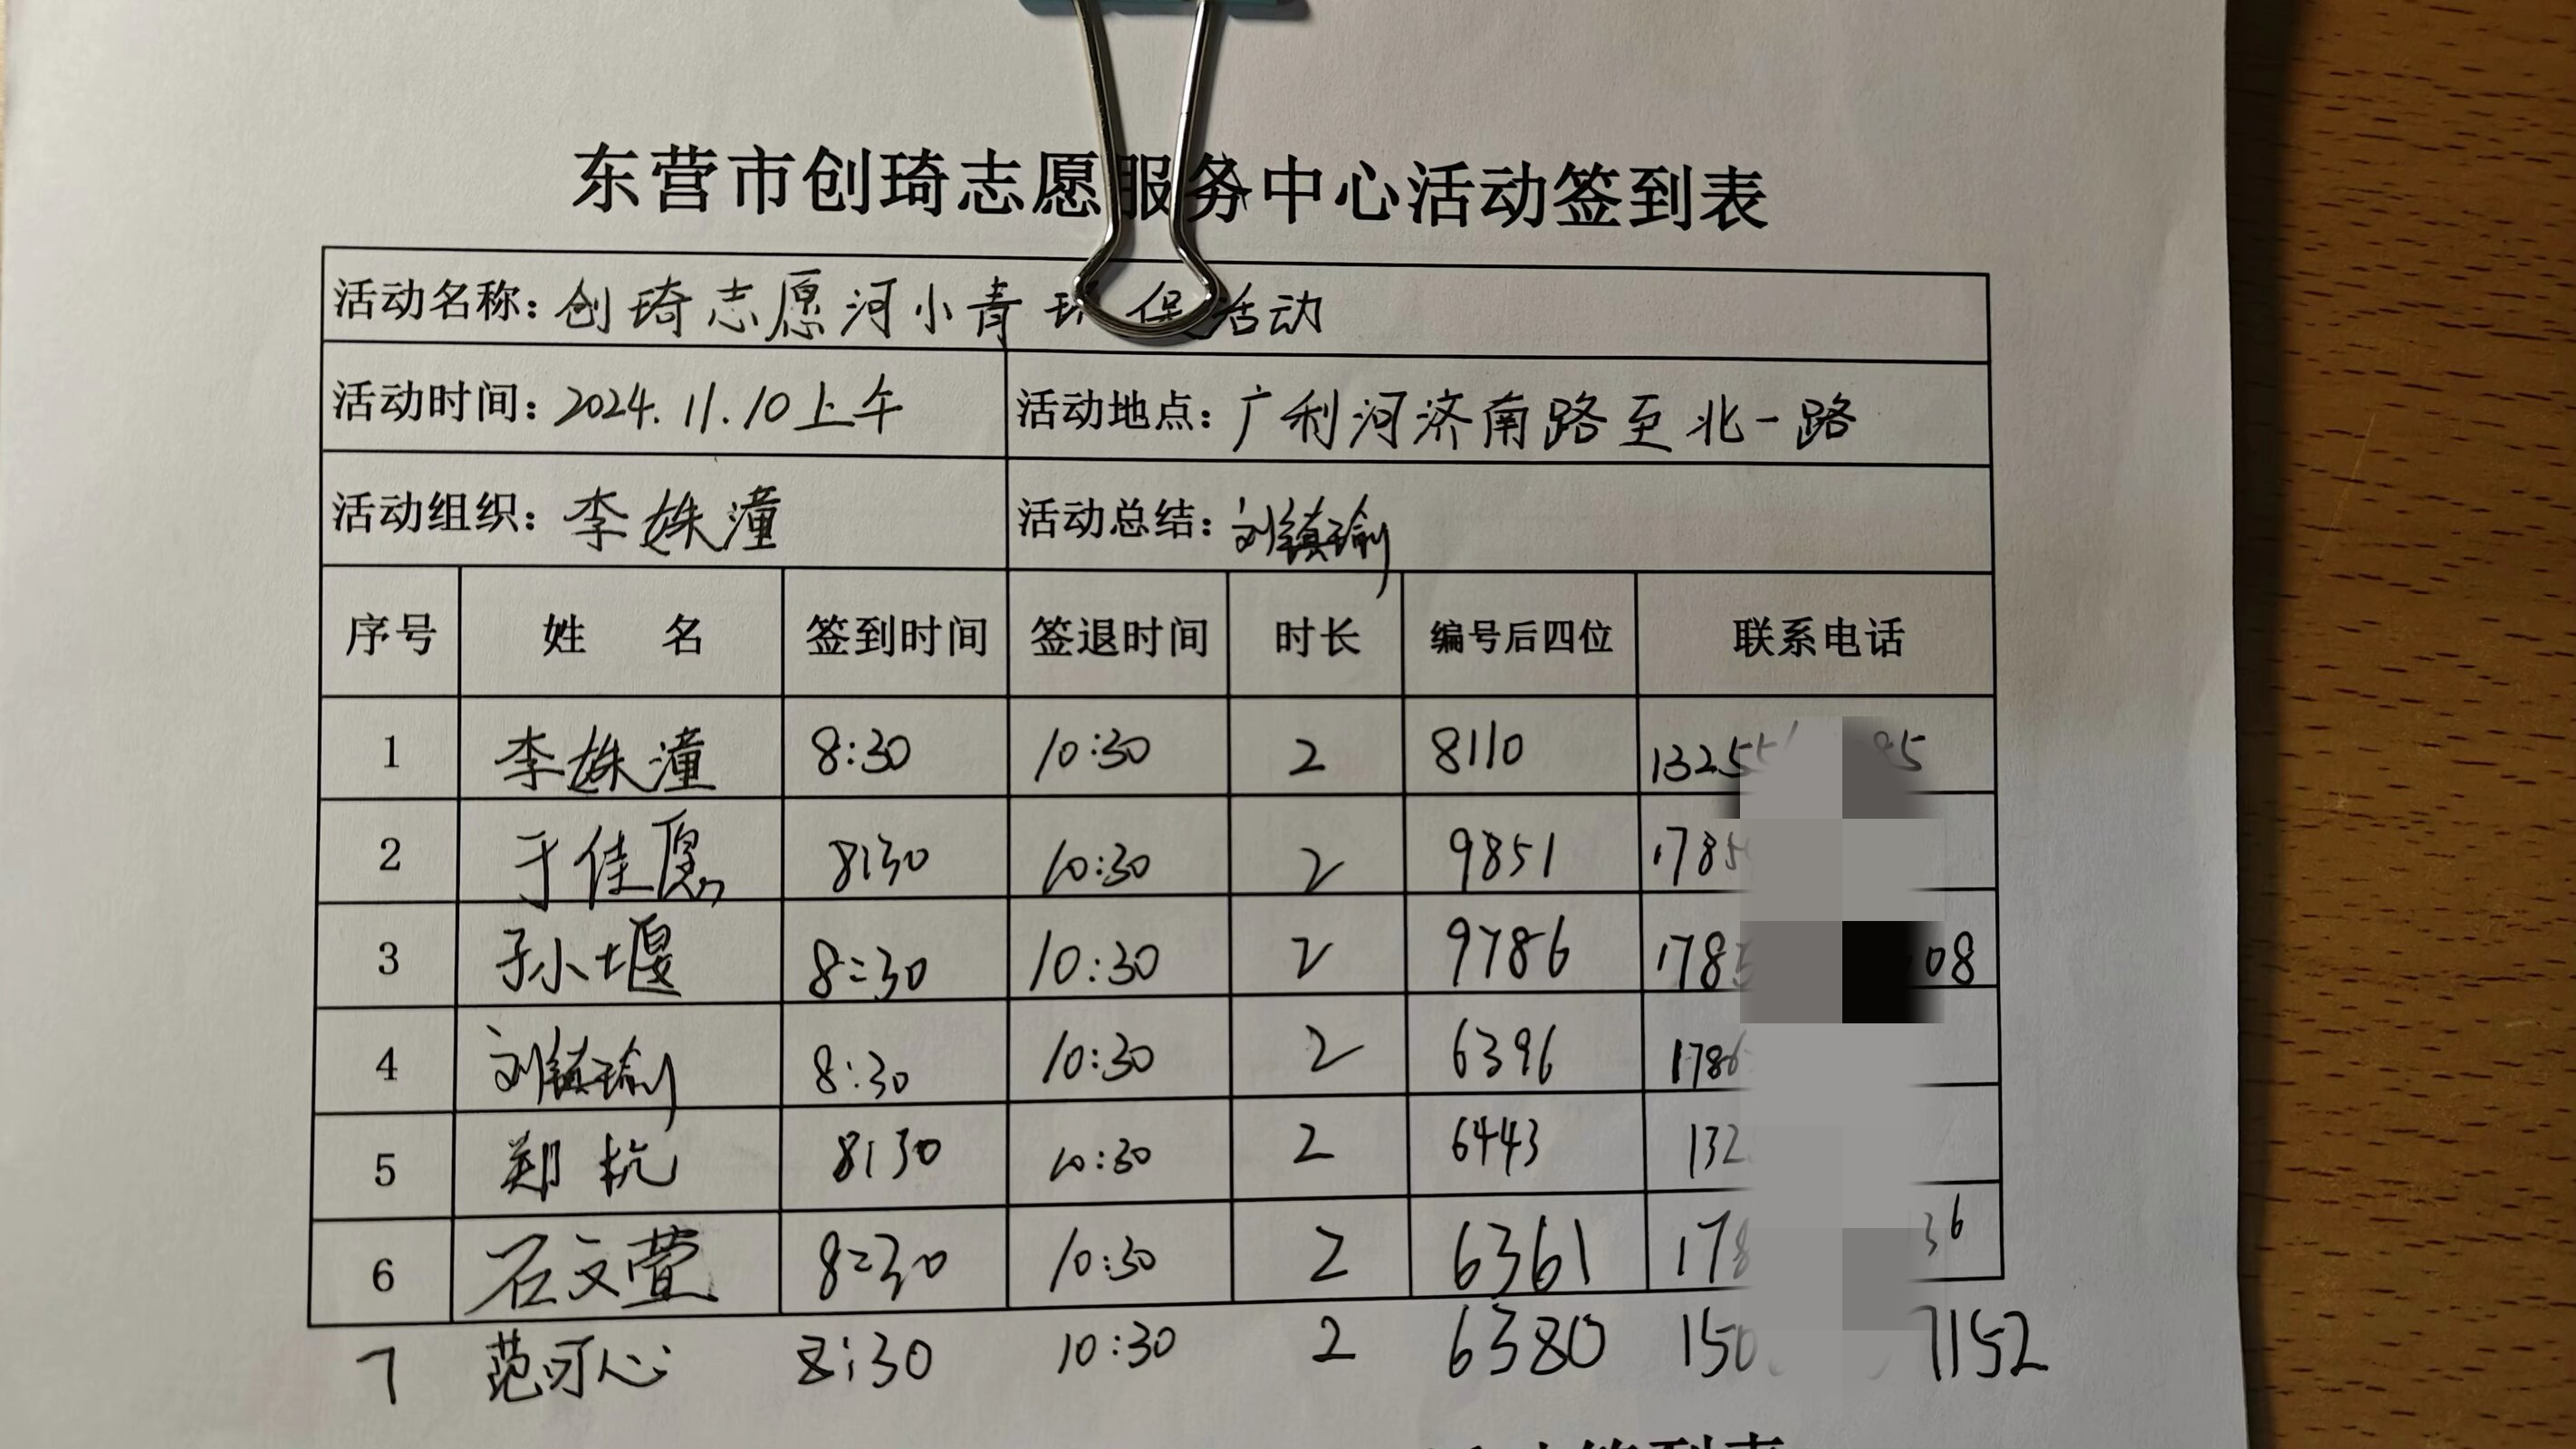 东营市创琦志愿服务中心活动签到表
活动名称：创琦志愿河小青环保活动
活动时间：2024.11.10上午 活动地点：广利河济南路至北一路
活动组织：李姝潼 活动总结：刘镇瑜
序号 姓 名 签到时间 签退时间 时长 编号后四位 联系电话
1 李姝潼 8:30 10:30 2 8110 1325
2 于佳愿 8:30 10:30 2 9851 178
3 孙小堰 8:30 10:30 2 9786 178 08
4 刘镇瑜 8:30 10:30 2 6396 1786
5 郑杭 8:30 10:30 2 6443 132
6 石文萱 8:30 10:30 2 6361 178 36
7 范可心 8:30 10:30 2 6380 150 7152